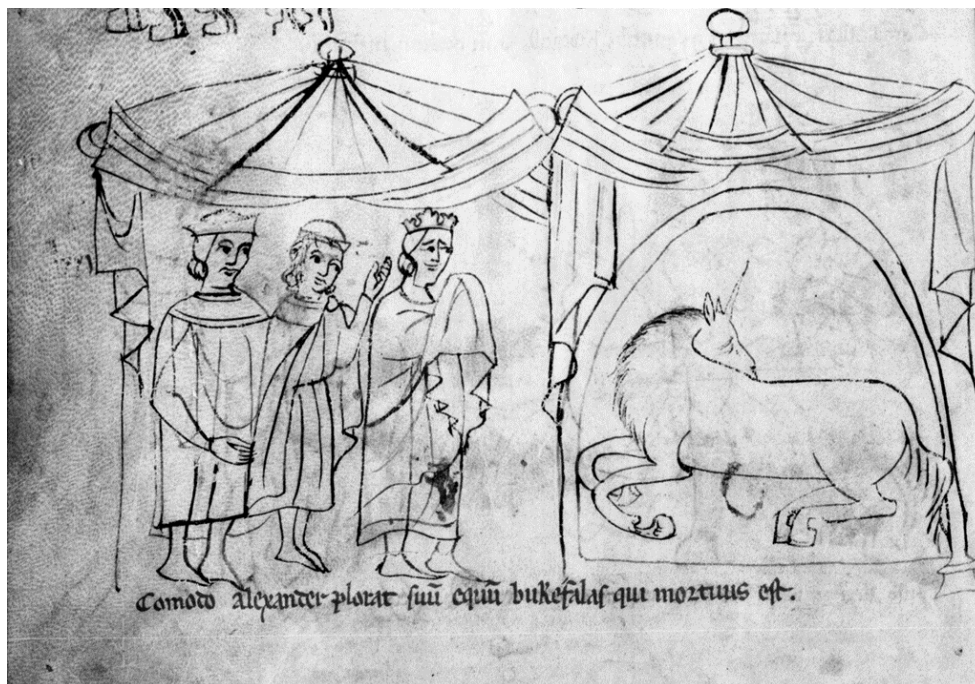 Comodo alexander plorat suū equū bukefalas qui mortuus est.